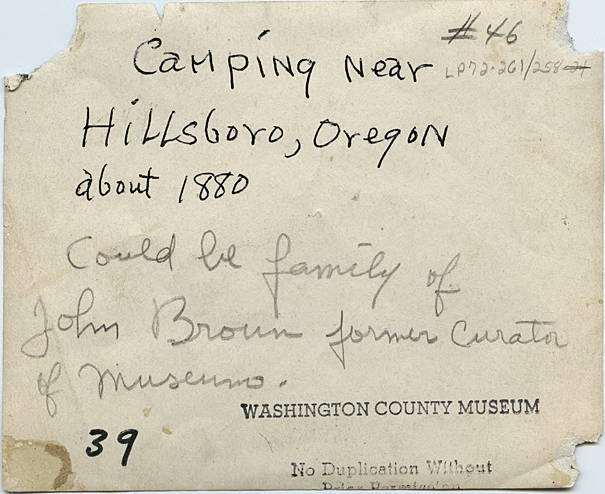 #46
Camping Near
LP72-261/258-21
Hillsboro, Oregon
about 1880
Could be family of
John Brown former Curator
of Museums.
WASHINGTON COUNTY MUSEUM
39
No Duplication Without
Prior Permission